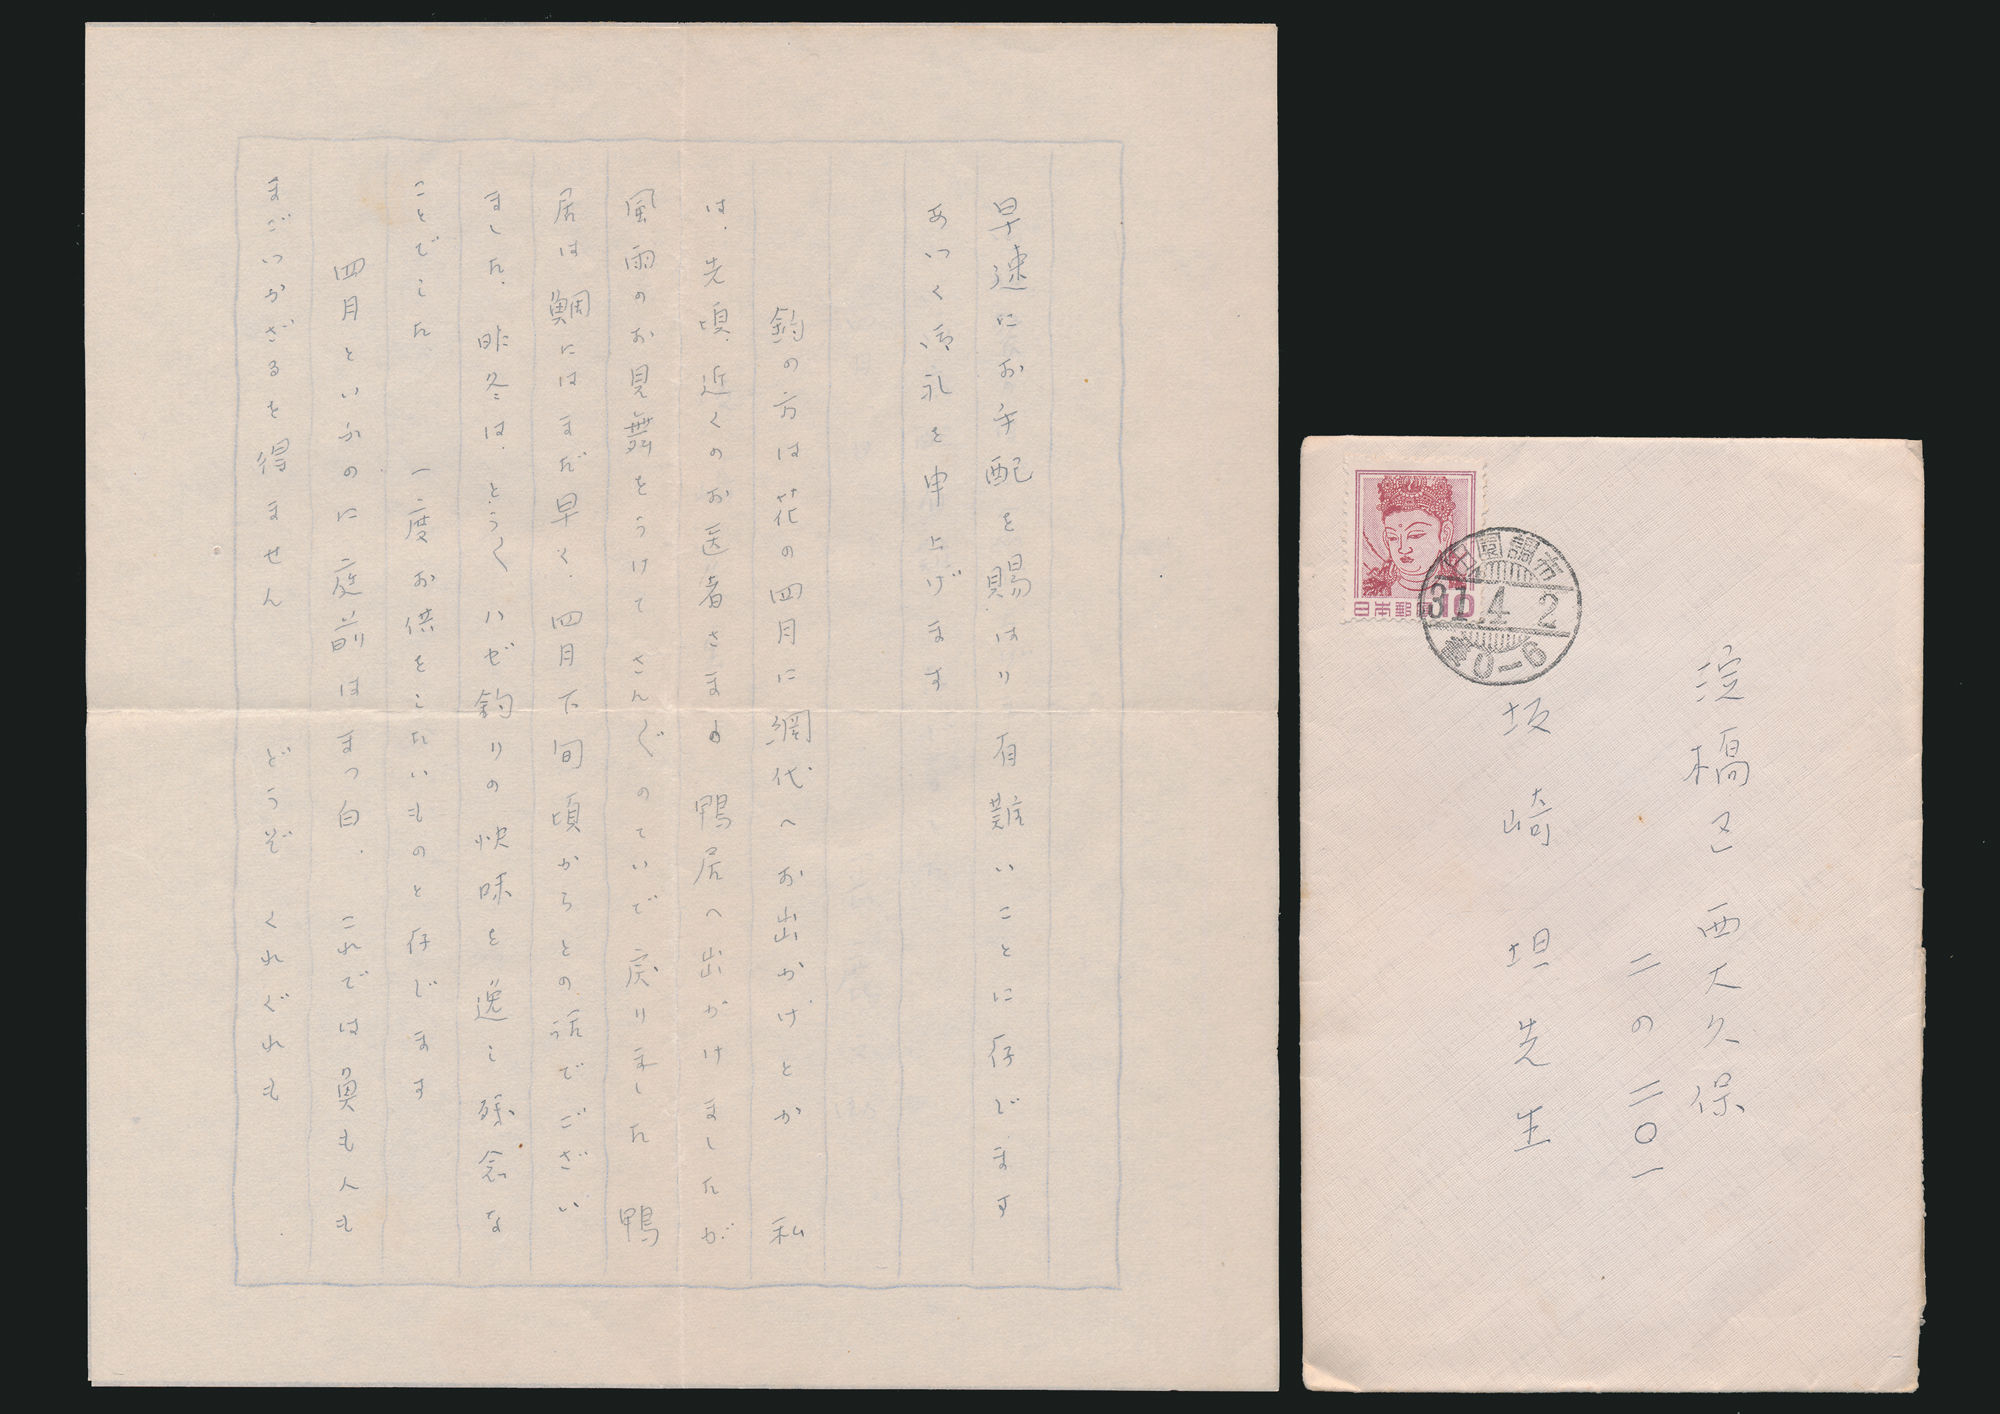 早速にお手配を賜はり 有難いことに存じます
あつく御礼を申上げます
釣の方は花の四月に網代へお出かけとか 私
は、先頃、近くのお医者さまの鴨居へ出かけましたが
風雨のお見舞をうけて さんぐのていで戻りました 鴨
居は鯛にはまだ早く、四月下旬頃からとの話でござい
ました、昨冬は、とうく ハゼ釣りの快味を逸し残念な
ことでした 一度お供をしたいものと存じます
四月といふのに庭前はまっ白、これでは魚も人も
まごつかざるを得ません どうぞくれぐれも
日本郵便
10
田園調布
31.4.2
後0-6
淀橋区西大久保
二の二〇一
坂崎坦先生